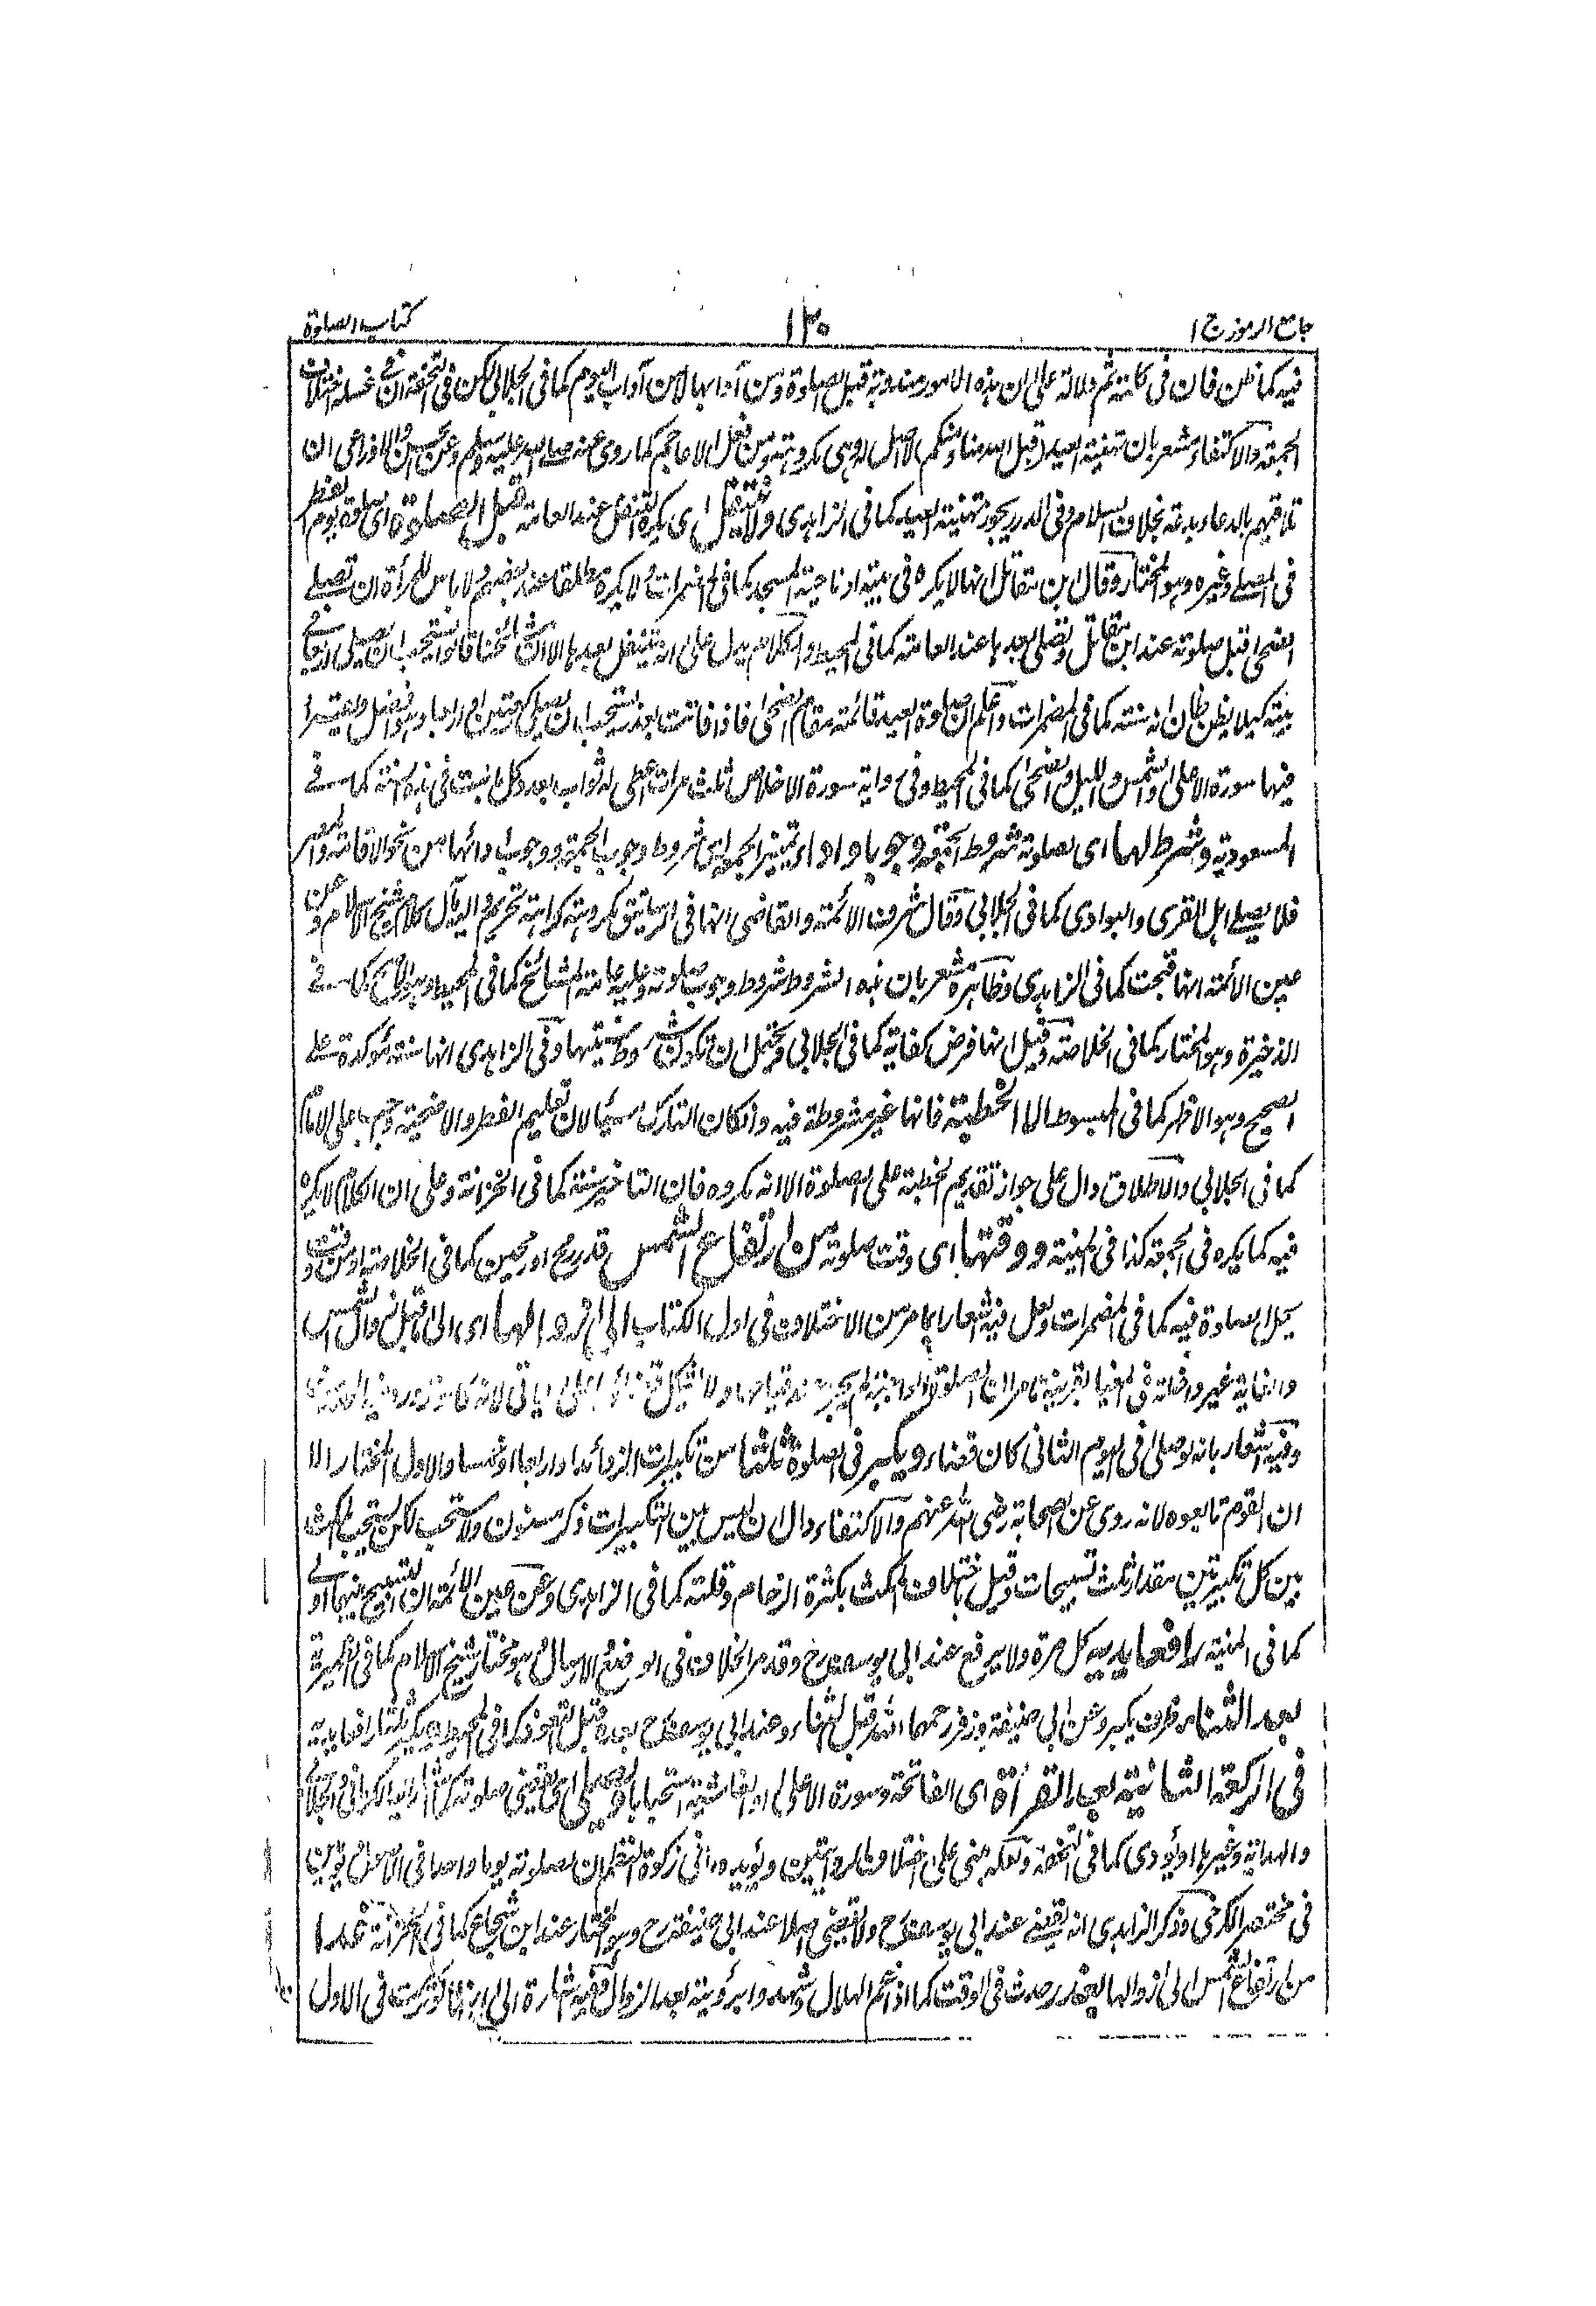 جامع الرموز ج ١
١٣٠
كتاب الصلوة
فيه كما ظن فان في كلمة ثم دلالة على ان هذه الامور مندوبة قبل الصلوة ومن آدابها لا من آداب اليوم كما في الجلابي لكن في التحفة ان في غسله اختلاف
الجمعة والاكتفاء مشعر بان تهنية العيد (تقبل الله منا ومنكم) لا اصل له وهي مكروهة ومن فعل الاعاجم كما روي عنه صلى الله عليه وسلم وعن الحسن والاوزاعي ان
تلاقيهم بالدعاء بدعة بخلاف السلام وفي الدرر يجوز تهنية العيد كما في الزاهدي ولا يتنفل اي يكره التنفل عند العامة قبل الصلوة اي صلوة يوم الفطر
في المصلى وغيره وهو المختار وقال ابن مقاتل انها لا يكره في بيته او ناحية المسجد كما في المضمرات ولا يكره مطلقا عند بعضهم ولا باس للمرأة ان تصلي
الضحى قبل صلوته عند ابن مقاتل وتصلي بعدها عند العامة كما في المحيط والكلام يدل على انه يتنفل بعدها الا ان مشائخنا قالوا يستحب ان يصلي اربعا في
بيته كيلا يظن ظان انه سنته كما في المضمرات واعلم ان صلوة العيد قائمة مقام الضحى فاذا فاتت بعذر يستحب ان يصلي ركعتين او اربعا وهو افضل
فيها سورة الاعلى والشمس والليل والضحى كما في المحيط وفي رواية سورة الاخلاص ثلث مرات اعطى له ثواب بعدد كل ما نبت في هذه السنة كما في
المسعودية وشرط لها اي لصلوته شروط الجمعة وجوبا واداء تمييز الجمعة اي شروط وجوب الجمعة ووجوب ادائها من نحو الاقامة والمصر
فلا يصلي اهل القرى والبوادي كما في الجلابي وقال شرف الائمة والقاضي انها في الرساتيق مكروهة كراهة تحريم واليه مال كلام شيخ الاسلام وعن
عين الائمة انها قبحت كما في الزاهدي وظاهره مشعر بان هذه الشروط شروط وجوب صلوته وعليه عامة المشائخ كما في المحيط وهو الاصح كما في
الذخيرة وهو المختار كما في الخلاصة وقيل انها فرض كفاية كما في الجلابي ويحتمل ان تكون شروط سنيتها وفي الزاهدي انها سنة مؤكدة على
الصحيح وهو الاظهر كما في المبسوط الا الخطبة فانها غير مشروطة فيه وانكان التارك مسيئا لان تعليم الفطر والاضحية وجب على الامام
كما في الجلابي والاطلاق دال على جواز تقديم الخطبة على الصلوة الا انه مكروه فان التاخير سنة كما في الخزانة وعلى ان الكلام لا يكره
فيه كما يكره في الجمعة كذا في المنية ووقتها اي وقت صلوته من ارتفاع الشمس قدر رمح او رمحين كما في الخلاصة او من وقت
يحل الصلوة فيه كما في المضمرات ولعل فيه اشعارا بما مر من الاختلاف في اول الكتاب الى زوالها اي الى ما قبل زوال الشمس
والغاية غير داخلة في المغيا بقرينة ما مر ان الصلوة الواجبة لم يجز عند قيامها
وفيه اشعار بانه لو صلى في اليوم الثاني كان قضاء ويكبر في الصلوة ثلثا من تكبيرات الزوائد او اربعا او خمسا والاول المختار الا
ان القوم تابعوه لانه روي عن الصحابة رضي الله عنهم والاكتفاء دال ان ليس بين التكبيرات ذكر مسنون ولا مستحب لكن يستحب المكث
بين كل تكبيرتين مقدار ثلث تسبيحات وقيل باختلاف المكث بكثرة الزحام وقلته كما في الزاهدي وعن عين الائمة ان التسبيح بينها اولى
كما في المنية رافعا يديه كل مرة ولا يرفع عند ابي يوسف رح وقد مر الخلاف في الوضع والارسال وهو مختار شيخ الاسلام كما في الظهيرية
بعد الثناء ظرف يكبر وعن ابي حنيفة وزفر رحمهما الله قبل الثناء وعند ابي يوسف رح بعده قبل التعوذ كما في المحيط ويكبر ثلثا رافعا يديه
في الركعة الثانية بعد القرأة اي الفاتحة وسورة الاعلى او الغاشية استحبابا ويصلي اي يقضي صلوته
والهداية وغيرها او يؤدي كما في التحفة ولعله مبني على اختلاف الروايتين ويؤيده ما في زكوة النظم ان لصلوته يوما واحدا في الاصول ويومين
في مختصر الكرخي وذكر الزاهدي انه يقضي عند ابي يوسف رح ولا يقضي اصلا عند ابي حنيفة رح وهو المختار عند ابن شجاع كما في الخزانة غدا
من ارتفاع الشمس الى زوالها بعذر حدث في الوقت كما اذا غم الهلال وشهدوا برؤيته بعد الزوال وفيه اشارة الى انها لو تركت في الاول